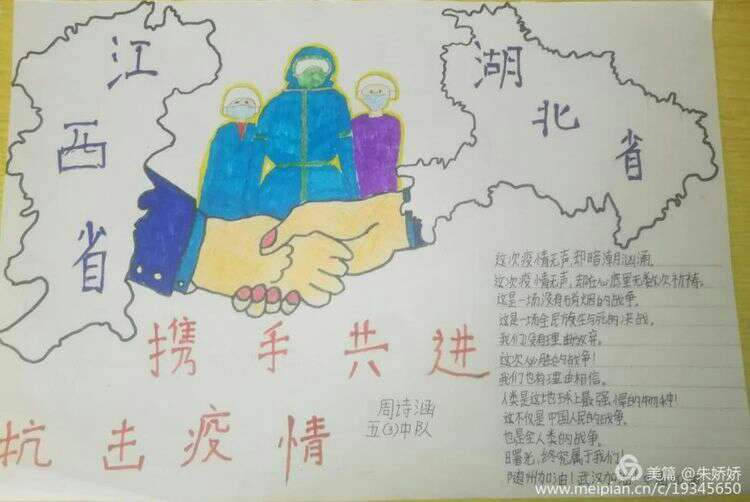 江西省
湖北省
携手共进
抗击疫情
周诗涵
五(3)中队
这次疫情无声,却暗潮汹涌,
这次疫情无声,却在心底里无数次祈祷。
这是一场没有硝烟的战争。
这是一场全民族生与死的决战。
我们没有理由放弃。
这次必胜的战争!
我们也有理由相信。
人类是这地球上最强悍的物种!
这不仅是中国人民的战争。
也是全人类的战争。
曙光,终究属于我们!
随州加油!武汉加
美篇 @朱娇娇
www.meipian.cn/c/19345650